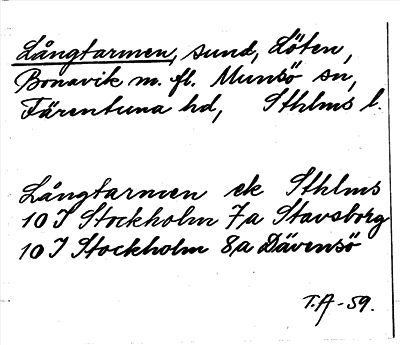 Långtarmen, sund, Löten,
Bonavik m. fl. Munsö sn,
Färentuna hd, Sthlms l.
Långtarmen ek Sthlms
10 I Stockholm 7a Stavsborg
10 I Stockholm 8a Dävensö
T.A -59.